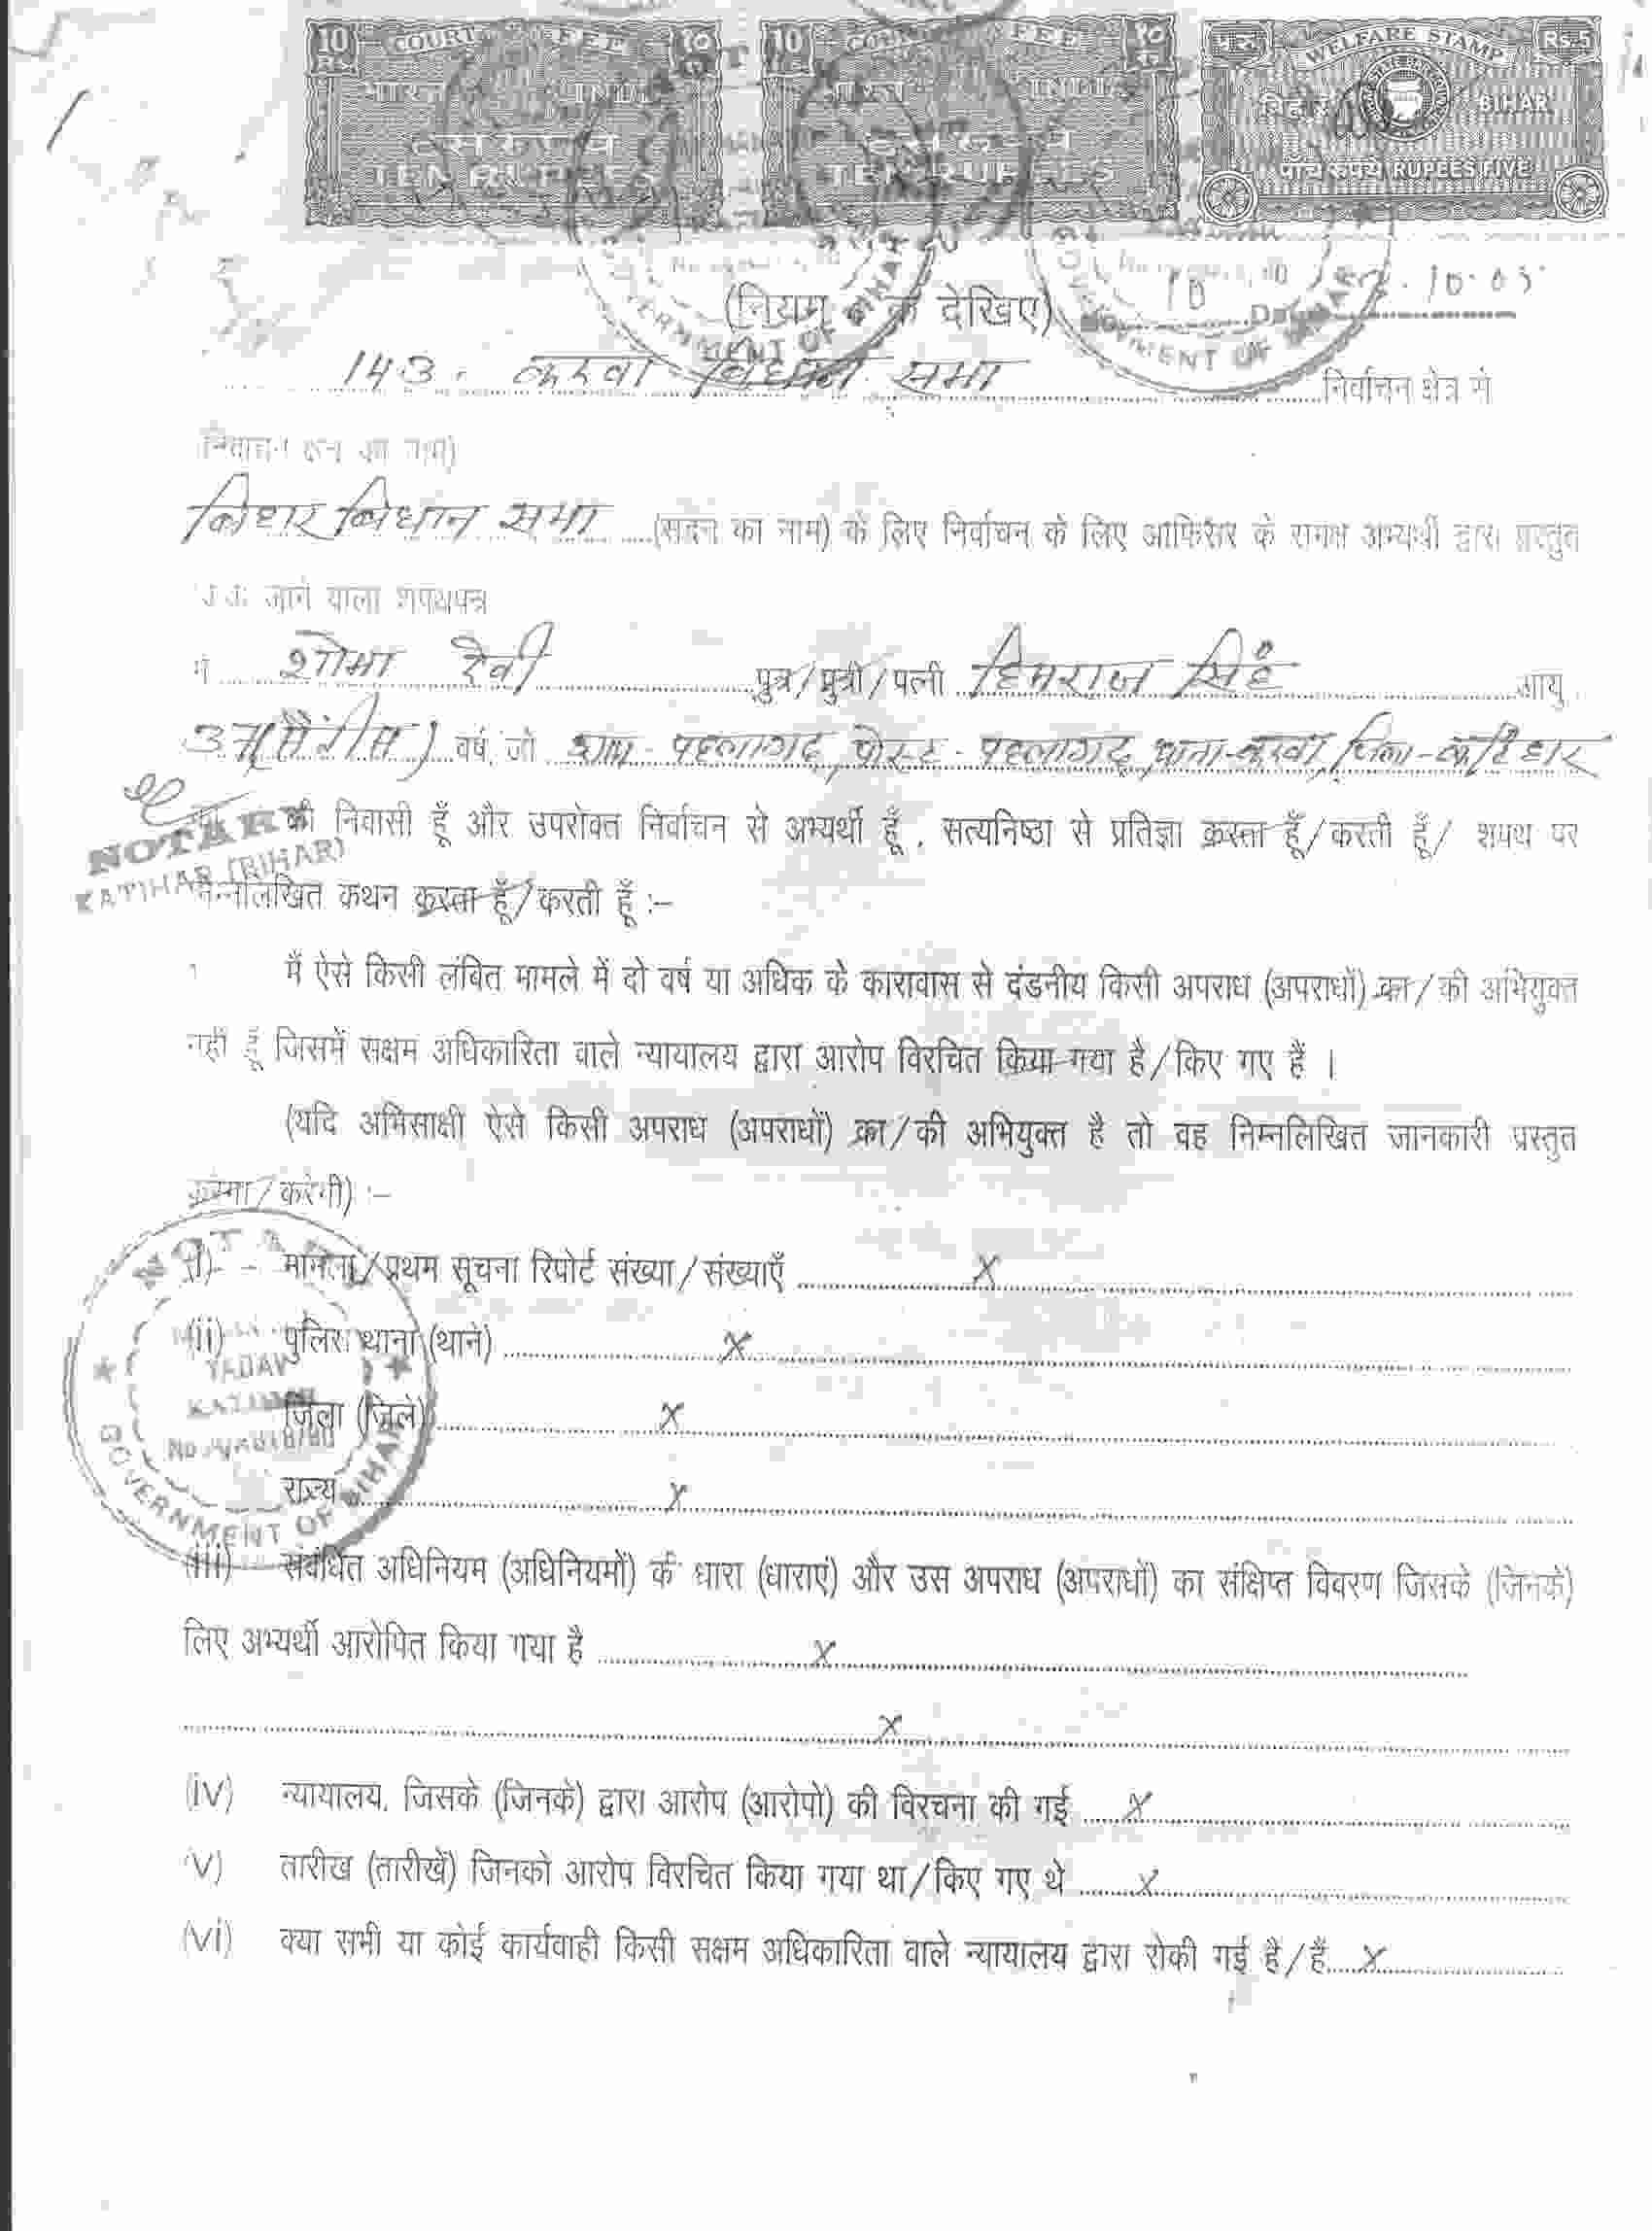 10 COURT FEE १० 10 COURT FEE १० WELFARE STAMP Rs.5
भारत INDIA भारत INDIA बिहार BIHAR
TEN RUPEES TEN RUPEES पाँच रूपये RUPEES FIVE
(नियम क देखिए)
GOVERNMENT OF BIHAR
GOVERNMENT OF BIHAR
143. कदवा विधान सभा निर्वाचन क्षेत्र से
(निर्वाचन क्षेत्र का नाम)
बिहार विधान सभा (सदन का नाम) के लिए निर्वाचन के लिए आफिसर के समक्ष अभ्यर्थी द्वारा प्रस्तुत
जाने वाला शपथपत्र
मैं शोभा देवी पुत्र/पुत्री/पत्नी हिमराज सिंह आयु
37(सैंतीस) वर्ष, जो ग्राम-पहलागढ़, पोस्ट-पहलागढ़, थाना-कदवा, जिला-कटिहार
NOTARY
KATIHAR (BIHAR)
की निवासी हूँ और उपरोक्त निर्वाचन से अभ्यर्थी हूँ, सत्यनिष्ठा से प्रतिज्ञा करता हूँ/करती हूँ/ शपथ पर
निम्नलिखित कथन करता हूँ/करती हूँ :–
1 मैं ऐसे किसी लंबित मामले में दो वर्ष या अधिक के कारावास से दंडनीय किसी अपराध (अपराधों) का/की अभियुक्त
नहीं हूँ जिसमें सक्षम अधिकारिता वाले न्यायालय द्वारा आरोप विरचित किया गया है/किए गए हैं ।
(यदि अभिसाक्षी ऐसे किसी अपराध (अपराधों) का/की अभियुक्त है तो वह निम्नलिखित जानकारी प्रस्तुत
करेगा/करेगी) :–
(i) मामला/प्रथम सूचना रिपोर्ट संख्या/संख्याएँ X
(ii) पुलिस थाना (थाने) X
जिला (जिले) X
राज्य X
NOTARY
YADAV
KATIHAR
GOVERNMENT OF BIHAR
(iii) संबंधित अधिनियम (अधिनियमों) की धारा (धाराएं) और उस अपराध (अपराधों) का संक्षिप्त विवरण जिसके (जिनके)
लिए अभ्यर्थी आरोपित किया गया है X
X
(iv) न्यायालय, जिसके (जिनके) द्वारा आरोप (आरोपो) की विरचना की गई X
(v) तारीख (तारीखें) जिनको आरोप विरचित किया गया था/किए गए थे X
(vi) क्या सभी या कोई कार्यवाही किसी सक्षम अधिकारिता वाले न्यायालय द्वारा रोकी गई है/हैं X